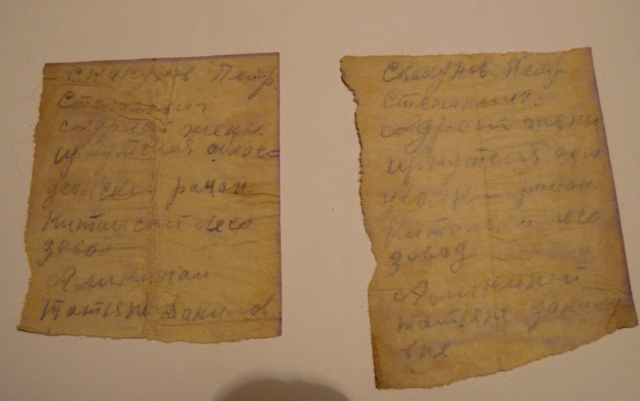 Скакунов Петр
Степанович
Адрес жены
Иркутская обла
район
Китайский лесо
завод
Татьяне Данилов
Скакунов Петр
Степаныч.
Адрес жены
Иркутская обл
район
лесо
завод
Татьяне Данило
вне